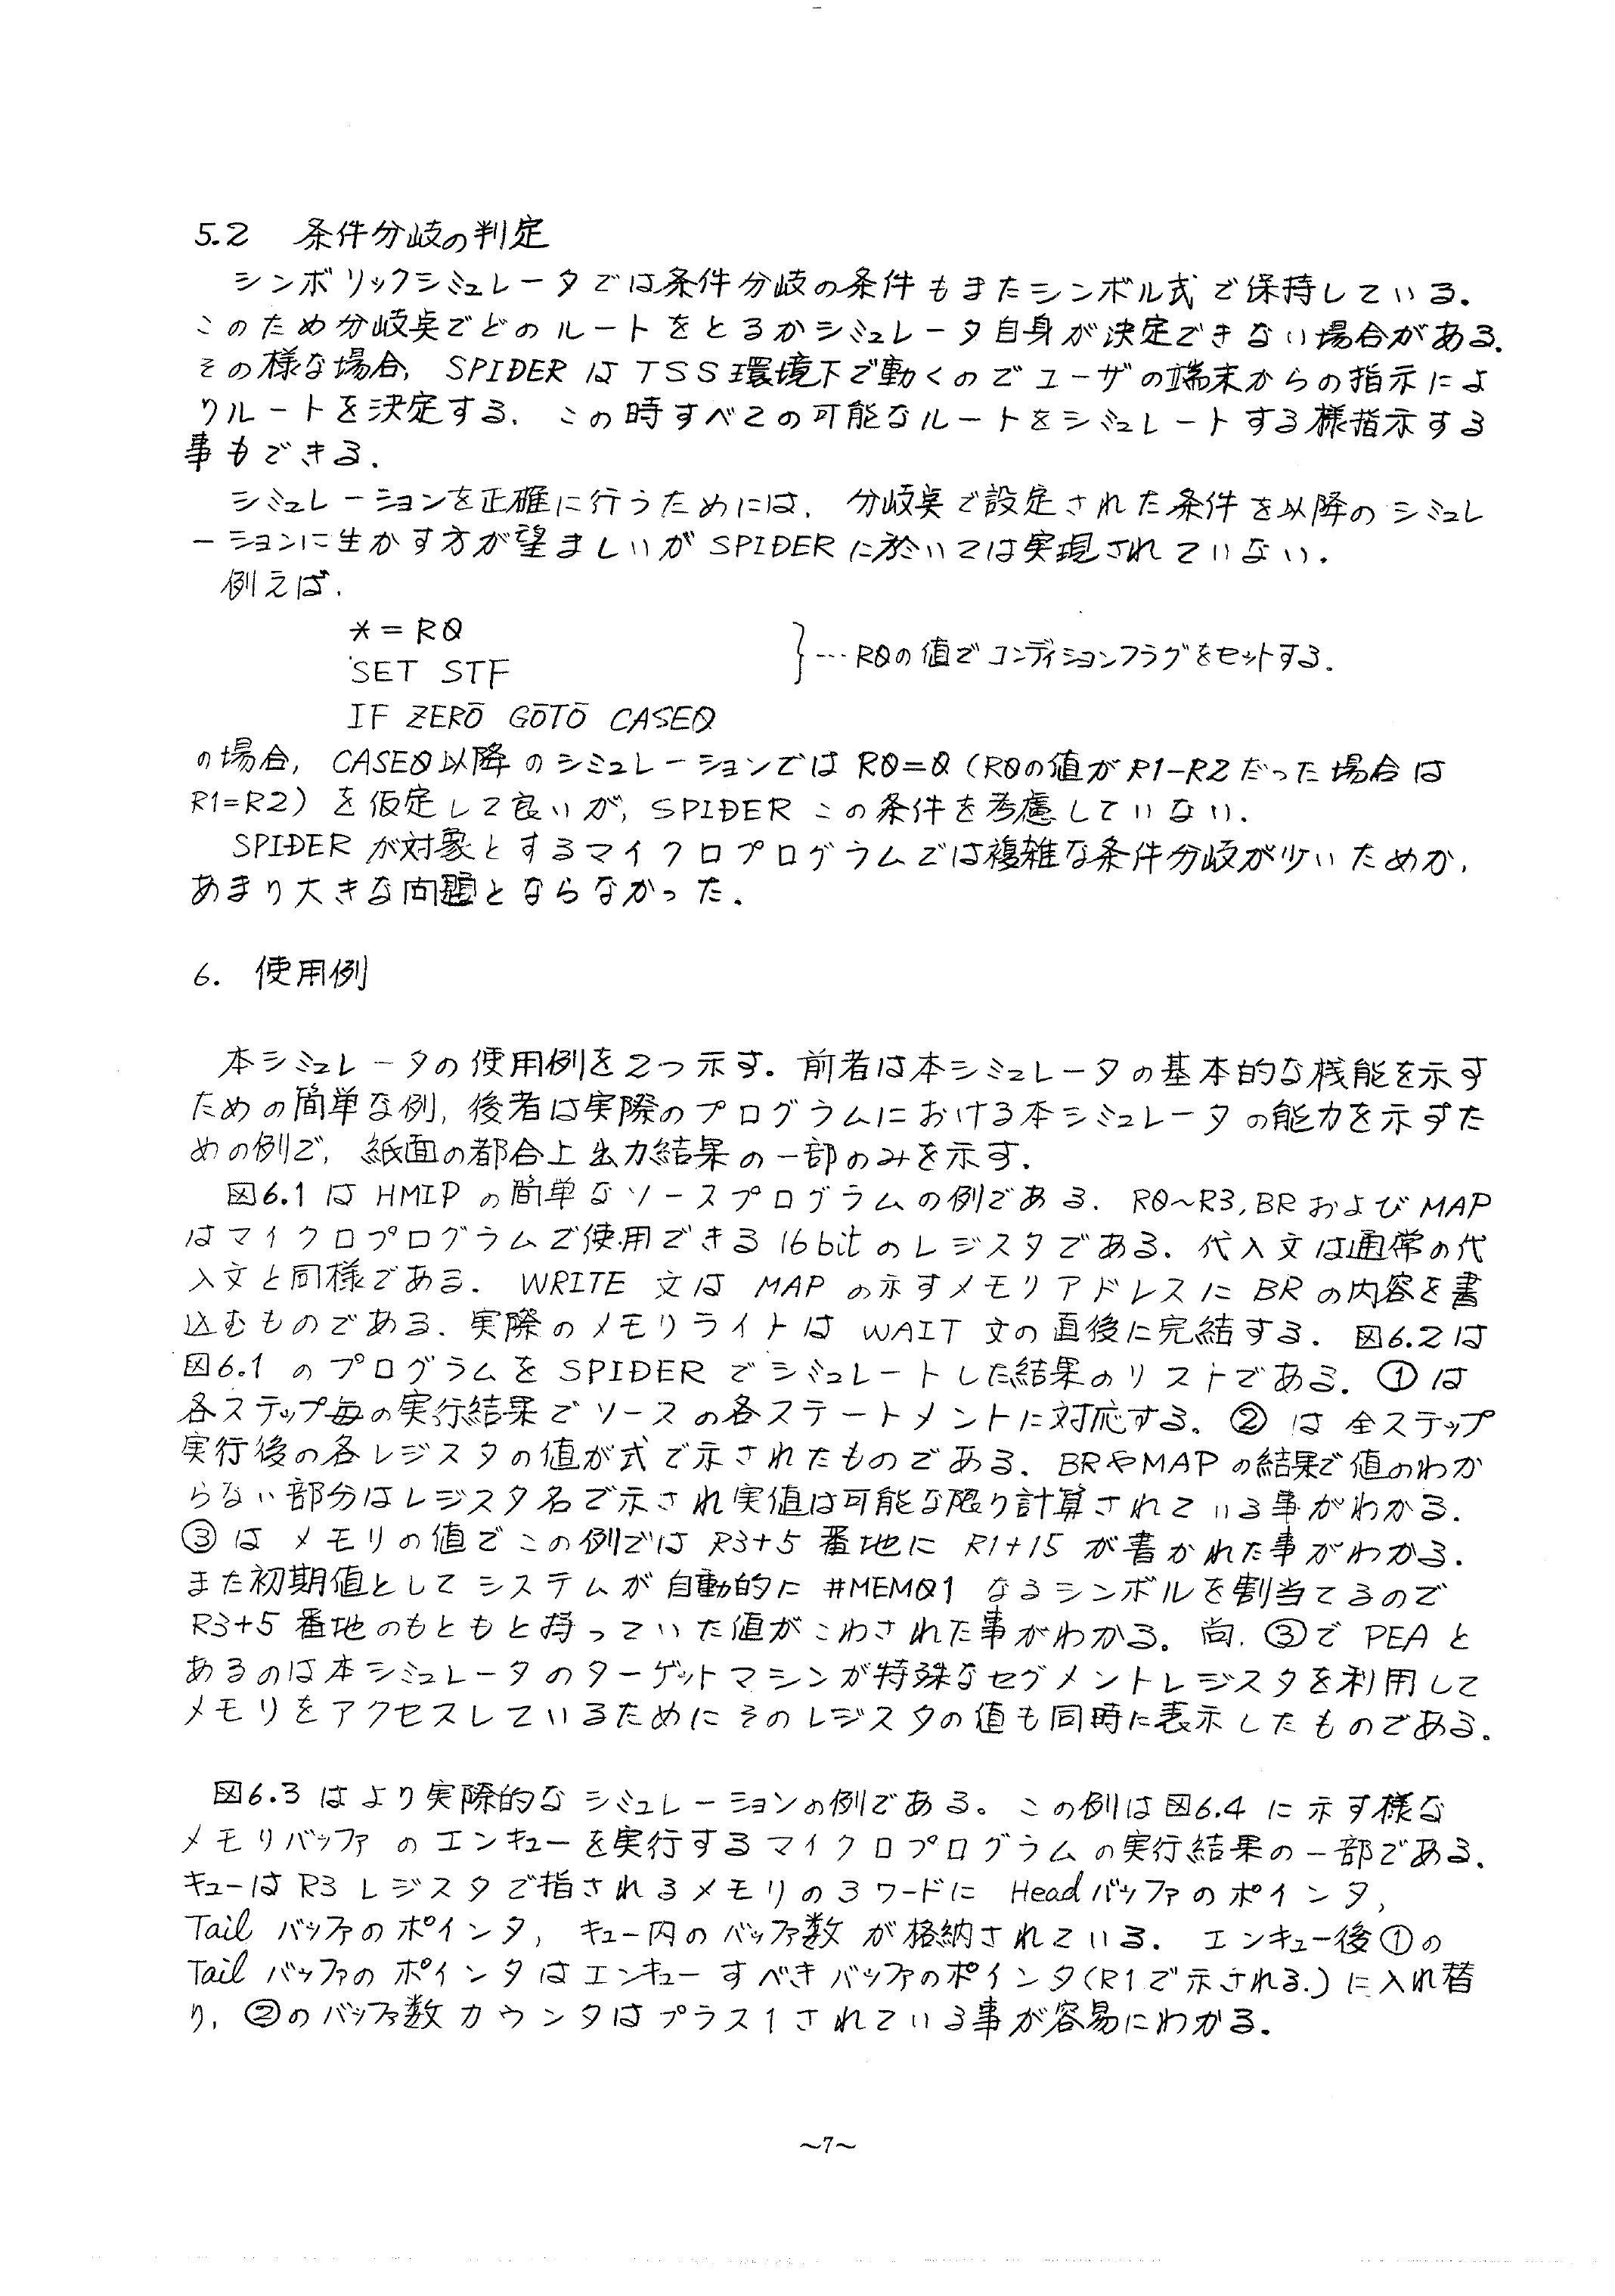 5.2 条件分岐の判定
シンボリックシミュレータでは条件分岐の条件もまたシンボル式で保持している.
このため分岐点でどのルートをとるかシミュレータ自身が決定できない場合がある.
その様な場合, SPIDER は TSS 環境下で動くのでユーザの端末からの指示によ
りルートを決定する. この時すべての可能なルートをシミュレートする様指示する
事もできる.
シミュレーションを正確に行うためには, 分岐点で設定された条件を以降のシミュレ
ーションに生かす方が望ましいが SPIDER に於いては実現されていない.
例えば.
* = R0
SET STF
}… R0の値でコンディションフラグをセットする.
IF ZERO GOTO CASE0
の場合, CASE0以降のシミュレーションでは R0=0 (R0の値が R1-R2 だった場合は
R1=R2) を仮定して良いが, SPIDER この条件を考慮していない.
SPIDER が対象とするマイクロプログラムでは複雑な条件分岐が少いためか,
あまり大きな問題とならなかった.
6. 使用例
本シミュレータの使用例を2つ示す. 前者は本シミュレータの基本的な機能を示す
ための簡単な例, 後者は実際のプログラムにおける本シミュレータの能力を示すた
めの例で, 紙面の都合上出力結果の一部のみを示す.
図6.1 は HMIP の簡単なソースプログラムの例である. R0~R3, BR および MAP
はマイクロプログラムで使用できる 16bit のレジスタである. 代入文は通常の代
入文と同様である. WRITE 文は MAP の示すメモリアドレスに BR の内容を書
込むものである. 実際のメモリライトは WAIT 文の直後に完結する. 図6.2は
図6.1 のプログラムを SPIDER でシミュレートした結果のリストである. ① は
各ステップ毎の実行結果でソースの各ステートメントに対応する. ② は全ステップ
実行後の各レジスタの値が式で示されたものである. BRやMAP の結果で値のわか
らない部分はレジスタ名で示され実値は可能な限り計算されている事がわかる.
③ は メモリの値でこの例では R3+5 番地に R1+15 が書かれた事がわかる.
また初期値としてシステムが自動的に #MEM01 なるシンボルを割当てるので
R3+5 番地のもともと持っていた値がこわされた事がわかる. 尚, ③で PEA と
あるのは本シミュレータのターゲットマシンが特殊なセグメントレジスタを利用して
メモリをアクセスしているためにそのレジスタの値も同時に表示したものである.
図6.3 はより実際的なシミュレーションの例である. この例は図6.4 に示す様な
メモリバッファのエンキューを実行するマイクロプログラムの実行結果の一部である.
キューは R3 レジスタで指されるメモリの3ワードに Headバッファのポインタ,
Tail バッファのポインタ, キュー内のバッファ数が格納されている. エンキュー後①の
Tail バッファのポインタはエンキューすべきバッファのポインタ(R1で示される.)に入れ替
り, ②のバッファ数カウンタはプラス1されている事が容易にわかる.
~7~